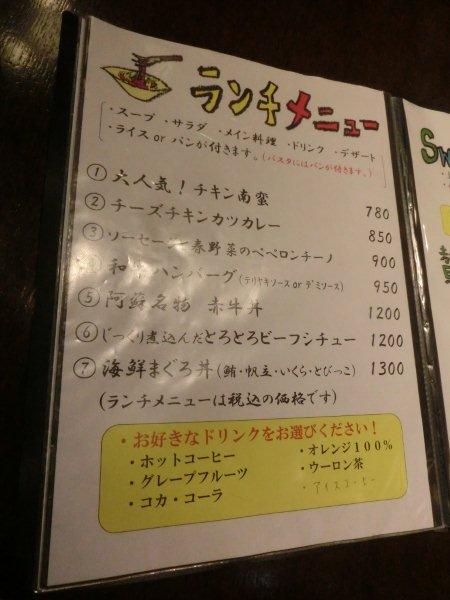 ランチメニュー
・スープ ・サラダ ・メイン料理 ・ドリンク ・デザート
・ライス or パンが付きます。(パスタにはパンが付きます。)
① 大人気！チキン南蛮 780
② チーズチキンカツカレー 850
③ ソーセージと春野菜のペペロンチーノ 900
和牛ハンバーグ(テリヤキソース or デミソース) 950
⑤ 阿蘇名物 赤牛丼 1200
⑥ じっくり煮込んだとろとろビーフシチュー 1200
⑦ 海鮮まぐろ丼(鮪・帆立・いくら・とびっこ) 1300
(ランチメニューは税込の価格です)
・お好きなドリンクをお選びください！
・ホットコーヒー
・グレープフルーツ
・コカ・コーラ
・オレンジ100%
・ウーロン茶
・アイスコーヒー